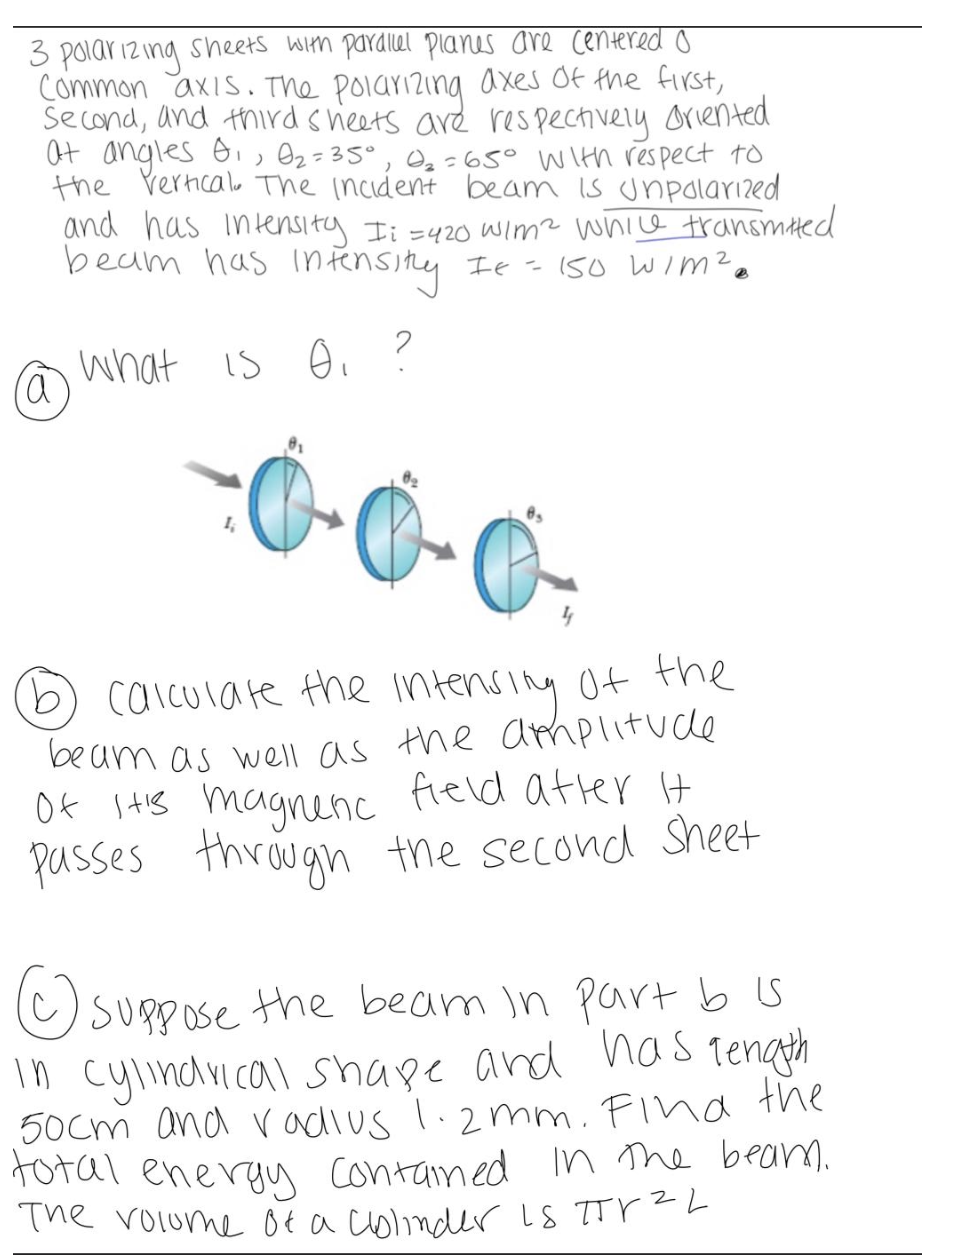 3 polarizing sheets with parallel planes are centered o
common axis. The polarizing axes of the first,
second, and third sheets are respectively oriented
at angles θ₁, θ₂=35°, θ₃=65° with respect to
the vertical. The incident beam is unpolarized
and has intensity Ii=420 W/m² while transmitted
beam has intensity If = 150 W/m².
(a) What is θ₁ ?
θ₁
θ₂
θ₃
Iᵢ
I_f
(b) calculate the intensity of the
beam as well as the amplitude
of its magnetic field after it
passes through the second sheet
(c) suppose the beam in part b is
in cylindrical shape and has length
50cm and radius 1.2mm. Find the
total energy contained in the beam.
The volume of a cylinder is πr²L